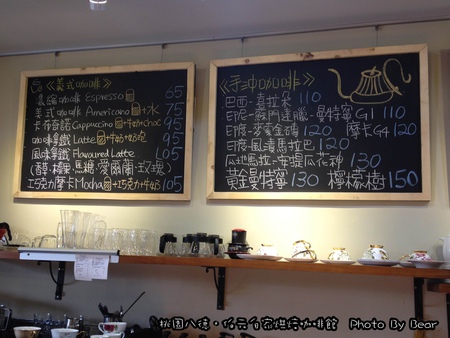 《美式咖啡》
濃縮咖啡 Espresso 65
美式咖啡 Americano +水 75
卡布奇諾 Cappuccino +牛奶+choc 95
咖啡拿鐵 Latte +牛奶+奶泡 95
風味拿鐵 Flavoured Latte 105
(香草·榛果·焦糖·愛爾蘭·玫瑰)
巧克力摩卡 Mocha +巧克力+牛奶 105
《手沖咖啡》
巴西-喜拉朵 110
印度-蘇門達臘-曼特寧G1 110
120 摩卡G4 120
印度-風漬馬拉巴 130
瓜地馬拉-安提瓜花神 130
黃金曼特寧 130 檸檬樹 150
桃園八德·
自家烘焙咖啡館 Photo By Bear